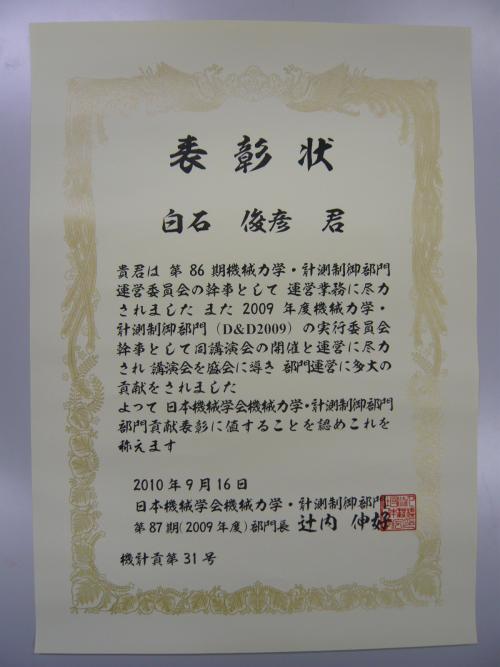 表彰状
白石 俊彦 君
貴君は 第 86 期機械力学・計測制御部門
運営委員会の幹事として 運営業務に尽力
されました また 2009 年度機械力学・
計測制御部門(D&D2009)の実行委員会
幹事として同講演会の開催と運営に尽力
され 講演会を盛会に導き 部門運営に多大の
貢献をされました
よって 日本機械学会機械力学・計測制御部門
部門貢献表彰に値することを認めこれを
称えます
2010 年 9 月 16 日
日本機械学会機械力学・計測制御部門
第 87 期(2009 年度)部門長 辻内 伸好
機計貢第 31 号